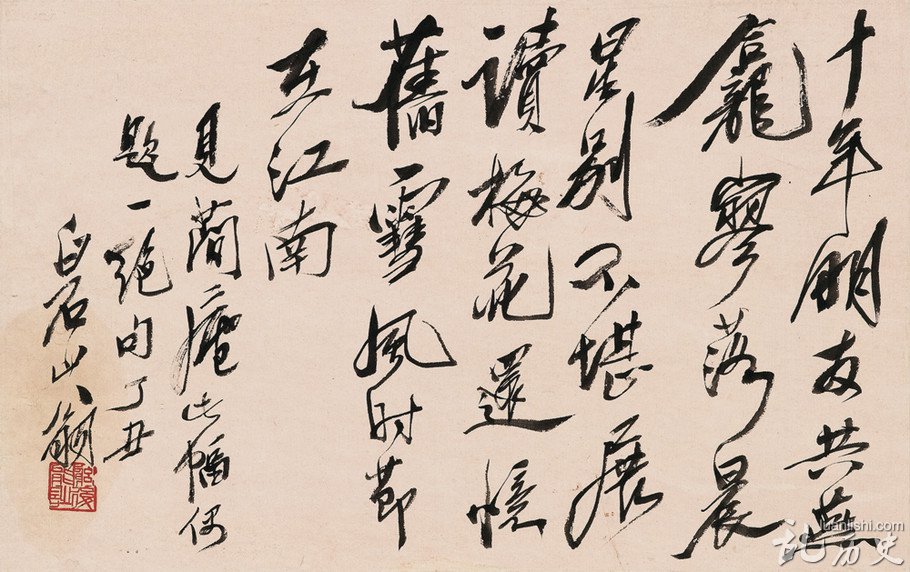 十年朋友共燕
龕寥落晨
星别不堪展
讀梅花還憶
舊雪風时節
在江南
見蕳庵此幅偶
題一絕句丁丑
白石山翁
luanlishi.com
历史